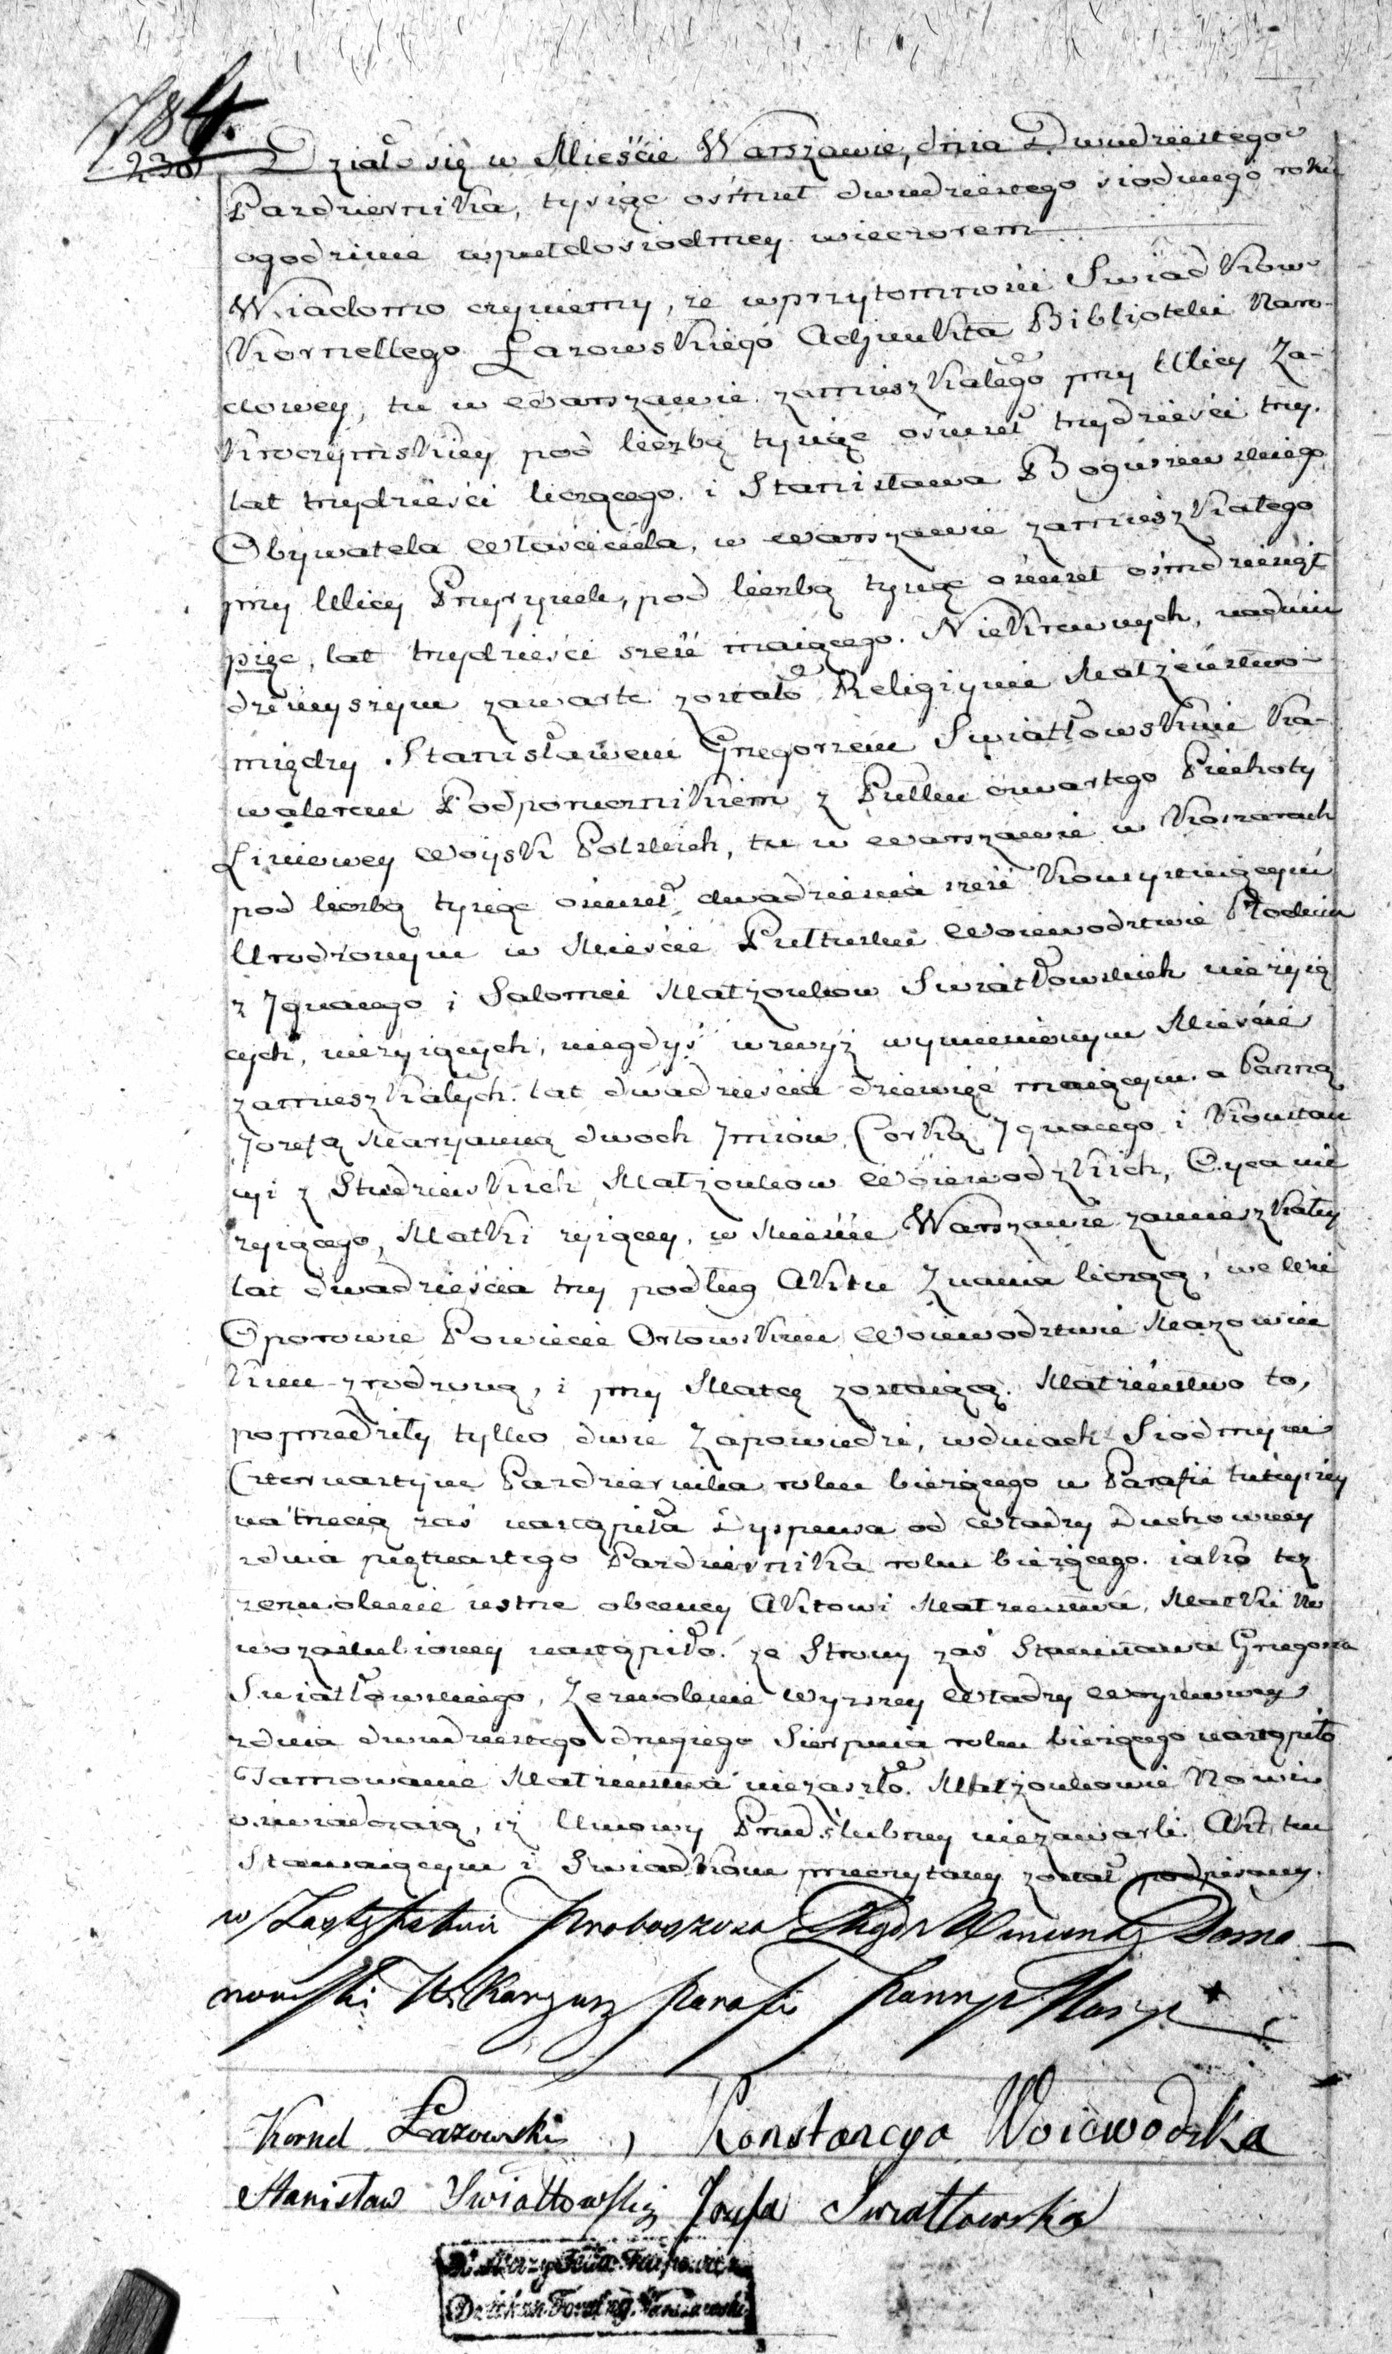 784.
238
Działo się w Mieście Warszawie, dnia Dwudziestego
Pazdziernika, tysiąc ośmset dwudziestego siodmego roku
ogodzinie wpułdosiodmey wieczorem
Wiadomo czyniemy, że wprzytomności Swiadkow
Kornellego Łazowskiego Adjunkta Biblioteki Naro-
dowey, tu w Warszawie zamieszkałego przy Ulicy Za-
kroczymskiey pod liczbą tysiąc ośmset trzydzieści trzy.
lat trzydzieści liczącego. i Stanisława Boguszewskiego
Obywatela Właściciela, w Warszawie zamieszkałego
przy Ulicy Przyrynek, pod liczbą tysiąc ośmset ośmdziesiąt
pięc, lat trzydzieści sześć maiącego. Niekrewnych, nadniu
dzisieyszym zawarte zostało Religiynie Małżeństwo
między Stanisławem Grzegorzem Swiatłowskim Ka-
walerem Podporucznikiem z Pułku czwartego Piechoty
Liniowey Woysk Polskich, tu w Warszawie w Koszarach
pod liczbą tysiąc ośmset dwadzieścia sześć konsystuiącym
Urodzonym w Mieście Pułtusku Woiewodztwie Płockim
z Ignacego i Salomei Małżonkow Swiatłowskich nieżyią
cych, nieżyiących, niegdyś wzwyż wymienionym Mieście
zamieszkałych. lat dwadzieścia dziewięć maiącym. a Panną
Jozefą Maryanną dwoch Jmion Corką Ignacego i Konstan
cyi z Studziewskich Małżonkow Woiewodzkich, Oyca nie
żyiącego, Matki żyiącey, w Mieście Warszawie zamieszkałey
lat dwadzieścia trzy podług Aktu Znania liczącą, we Wsi
Oporowie Powiecie Orłowskim Woiewodztwie Mazowiec
kim zrodzoną, i przy Matce zostaiącą. Małżeństwo to,
poprzedziły tylko dwie Zapowiedzi, wdniach Siodmym
Czternastym Pazdziernika roku bieżącego w Parafii tuteyszey
na trzecią zaś nastąpiła Dyspensa od Władzy Duchowney
zdnia piętnastego Pazdziernika roku bieżącego. iako też
zezwolenie ustne obecney Aktowi Małżeństwa, Matki No
wozaślubioney nastąpiło. ze Strony zaś Stanisława Grzegorza
Swiatłowskiego, Zezwolenie Wyższey Władzy Woyskowey
zdnia dwudziestego drugiego Sierpnia roku bieżącego nastąpiło
Tamowanie Małżeństwa niezaszło. Małżonkowie Nowi
oświadczaią, iż Umowy Przedślubney niezawarli. Akt ten
Stawaiącym i Swiadkom przeczytany został podpisany.
w Zastępstwie Proboszcza Xiądz Domo-
nowski Wikaryusz Parafii Panny Maryi
Kornel Łazowski, Konstancya Woiewodzka
Stanisław Swiatłowski Jozefa Swiatłowska